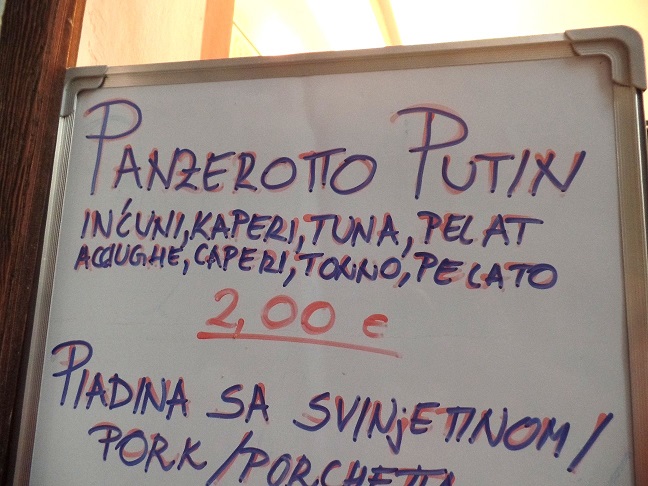 PANZEROTTO PUTIN
INĆUNI, KAPERI, TUNA, PELAT
ACCIUGHE, CAPERI, TONNO, PELATO
2,00 €
PIADINA SA SVINjETINOM/
PORK/PORCHETTA